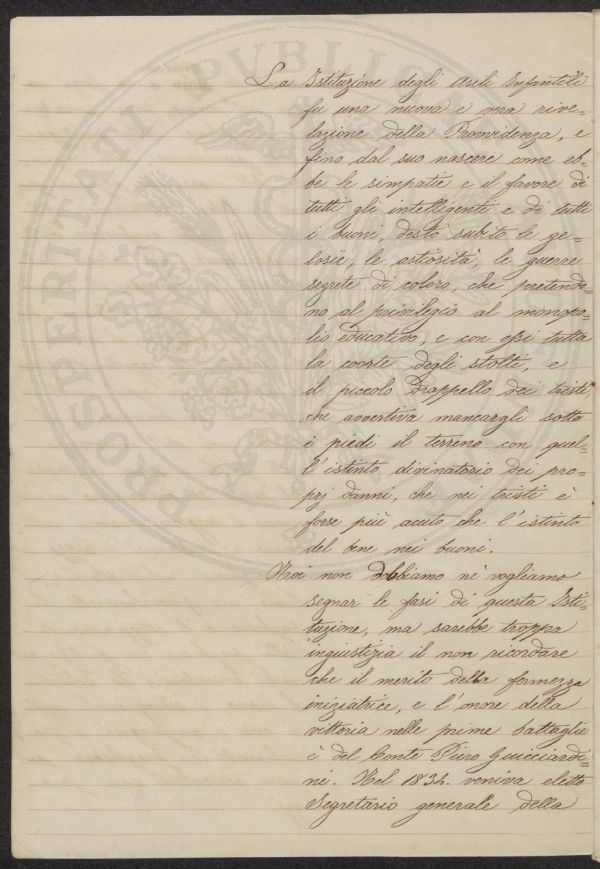 La Istituzione degli Asili Infantili
fu una nuova e vera rive=
lazione della Provvidenza, e
fino dal suo nascere come eb=
be le simpatie e il favore di
tutti gli intelligenti e di tutti
i buoni, destò subito le ge=
losie, le astiosità, le guerre
segrete di coloro, che pretendo=
no al privilegio al monopo=
lio educativo, e con essi tutta
la coorte degli stolti, e
il piccolo drappello dei tristi,
che avvertiva mancargli sotto
i piedi il terreno con quel=
l'istinto divinatorio dei pro=
prj danni, che nei tristi è
forse più acuto che l'istinto
del bene nei buoni.
Noi non dobbiamo nè vogliamo
segnar le fasi di questa Isti=
tuzione, ma sarebbe troppa
ingiustizia il non ricordare
che il merito della fermezza
iniziatrice, e l'onore della
vittoria nelle prime battaglie
è del Conte Piero Guicciardi=
ni. Nel 1834. veniva eletto
Segretario generale della
PROSPERITATI PVBLIC